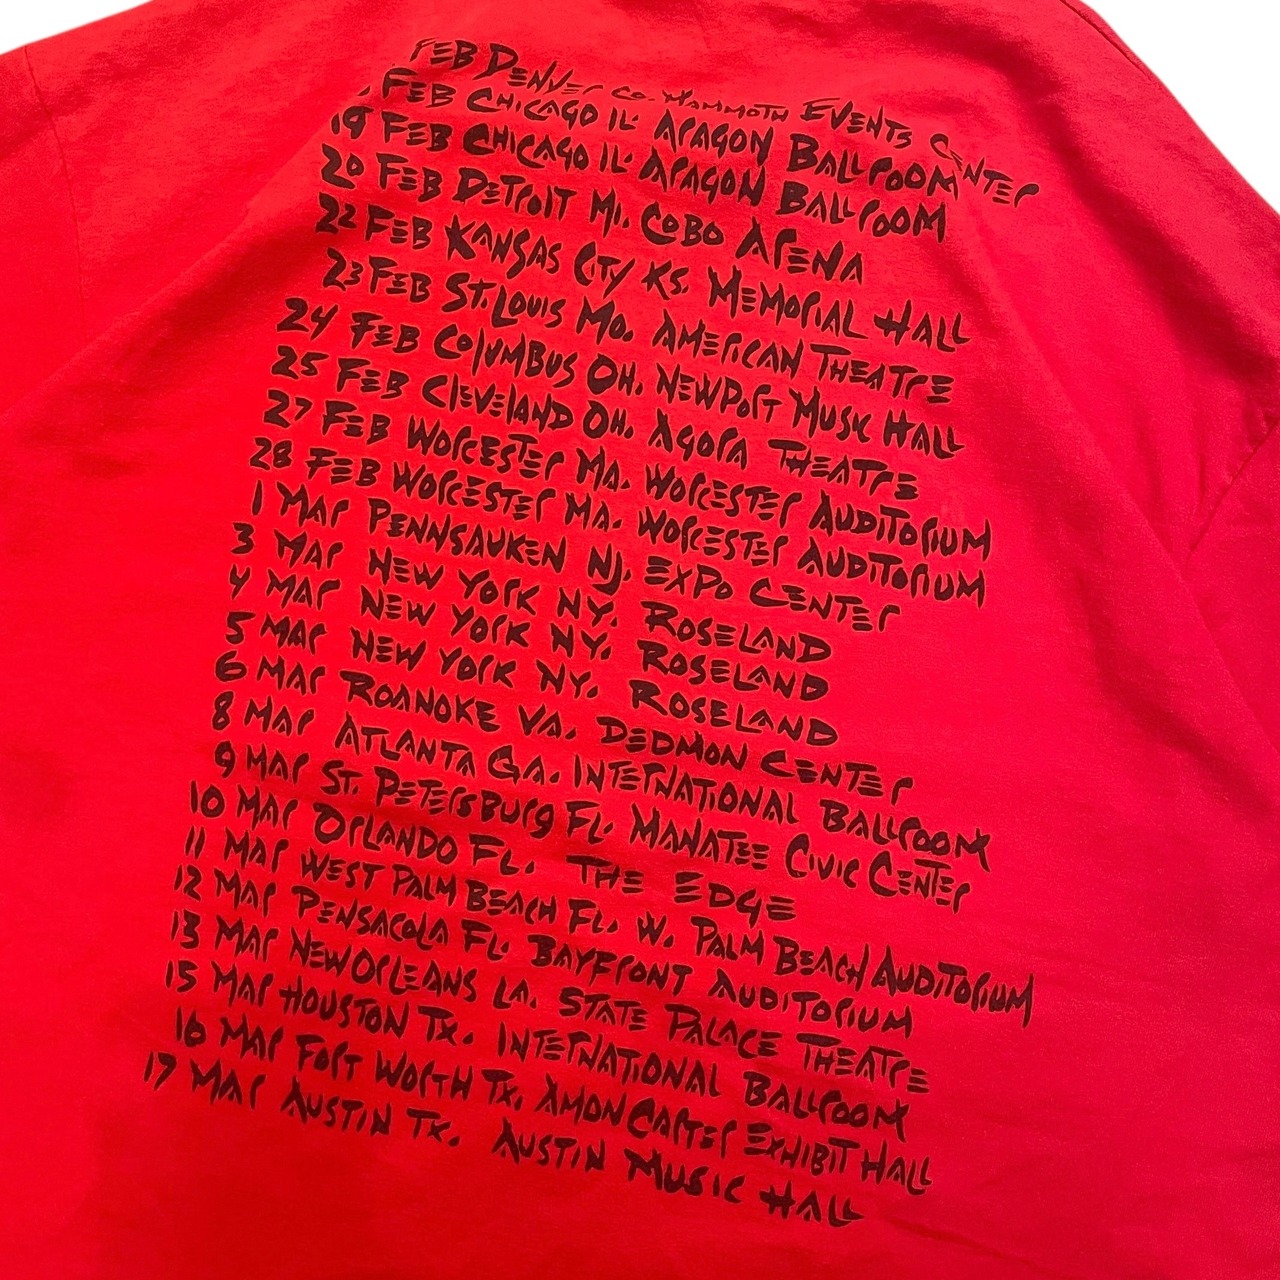 FEB DENVER CO. MAMMOTH EVENTS CENTER
FEB CHICAGO IL. ARAGON BALLROOM
19 FEB CHICAGO IL. ARAGON BALLROOM
20 FEB DETROIT MI. COBO ARENA
22 FEB KANSAS CITY KS. MEMORIAL HALL
23 FEB ST. LOUIS MO. AMERICAN THEATRE
24 FEB COLUMBUS OH. NEWPORT MUSIC HALL
25 FEB CLEVELAND OH. AGORA THEATRE
27 FEB WORCESTER MA. WORCESTER AUDITORIUM
28 FEB WORCESTER MA. WORCESTER AUDITORIUM
1 MAR PENNSAUKEN NJ. EXPO CENTER
3 MAR NEW YORK NY. ROSELAND
4 MAR NEW YORK NY. ROSELAND
5 MAR NEW YORK NY. ROSELAND
6 MAR ROANOKE VA. DEDMON CENTER
8 MAR ATLANTA GA. INTERNATIONAL BALLROOM
9 MAR ST. PETERSBURG FL. MANATEE CIVIC CENTER
10 MAR ORLANDO FL. THE EDGE
11 MAR WEST PALM BEACH FL. W. PALM BEACH AUDITORIUM
12 MAR PENSACOLA FL. BAYFRONT AUDITORIUM
13 MAR NEW ORLEANS LA. STATE PALACE THEATRE
15 MAR HOUSTON TX. INTERNATIONAL BALLROOM
16 MAR FORT WORTH TX. AMON CARTER EXHIBIT HALL
17 MAR AUSTIN TX. AUSTIN MUSIC HALL